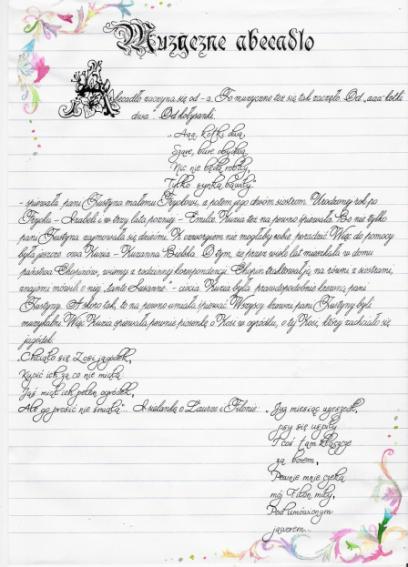 Muzyczne abecadło
Abecadło zaczyna się od - a. To muzyczne też się tak zaczęło. Od „aaa kotki
dwa". Od kołysanki.
„Aaa, kotki dwa,
Szare, bure obydwa,
Nic nie będą robiły,
Tylko synka bawiły"
- śpiewała pani Justyna małemu Fryckowi, a potem jego dwóm siostrom. Urodzonej rok po
Frycku - Izabeli i w trzy lata później - Emilii. Zuzia też na pewno śpiewała. Bo nie tylko
pani Justyna zajmowała się dziećmi. Z czworgiem nie mogłaby sobie poradzić. Więc do pomocy
była jeszcze owa Zuzia - Zuzanna Bielska. O tym, że przez wiele lat mieszkała w domu
państwa Chopinów, wiemy z rodzinnej korespondencji. Chopin traktował ją na równi z siostrami,
znajomi mówili o niej „tante Susanne" - ciocia. Zuzia była prawdopodobnie krewną pani
Justyny. A skoro tak, to na pewno umiała śpiewać. Wszyscy krewni pani Justyny byli
muzykalni. Więc Zuzia śpiewała pewnie piosenkę o Zosi w ogródku, o tej Zosi, której zachciało się
jagódek.
„Chciało się Zosi jagódek,
Kupić ich za co nie miała.
Jaś miał ich pełen ogródek,
Ale go prosić nie śmiała". I sielankę o Laurze i Filonie: „Już miesiąc zeszedł,
psy się uśpiły
I coś tam klaszcze
za borem,
Pewnie mnie czeka
mój Filon miły,
Pod umówionym
jaworem...